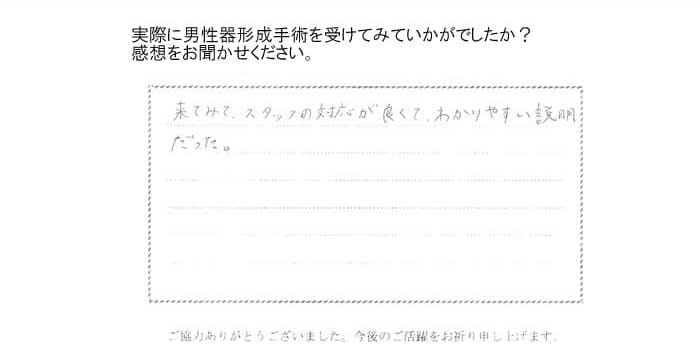 実際に男性器形成手術を受けてみていかがでしたか？
感想をお聞かせください。
来てみて、スタッフの対応が良くて、わかりやすい説明
だった。
ご協力ありがとうございました。今後のご活躍をお祈り申し上げます。